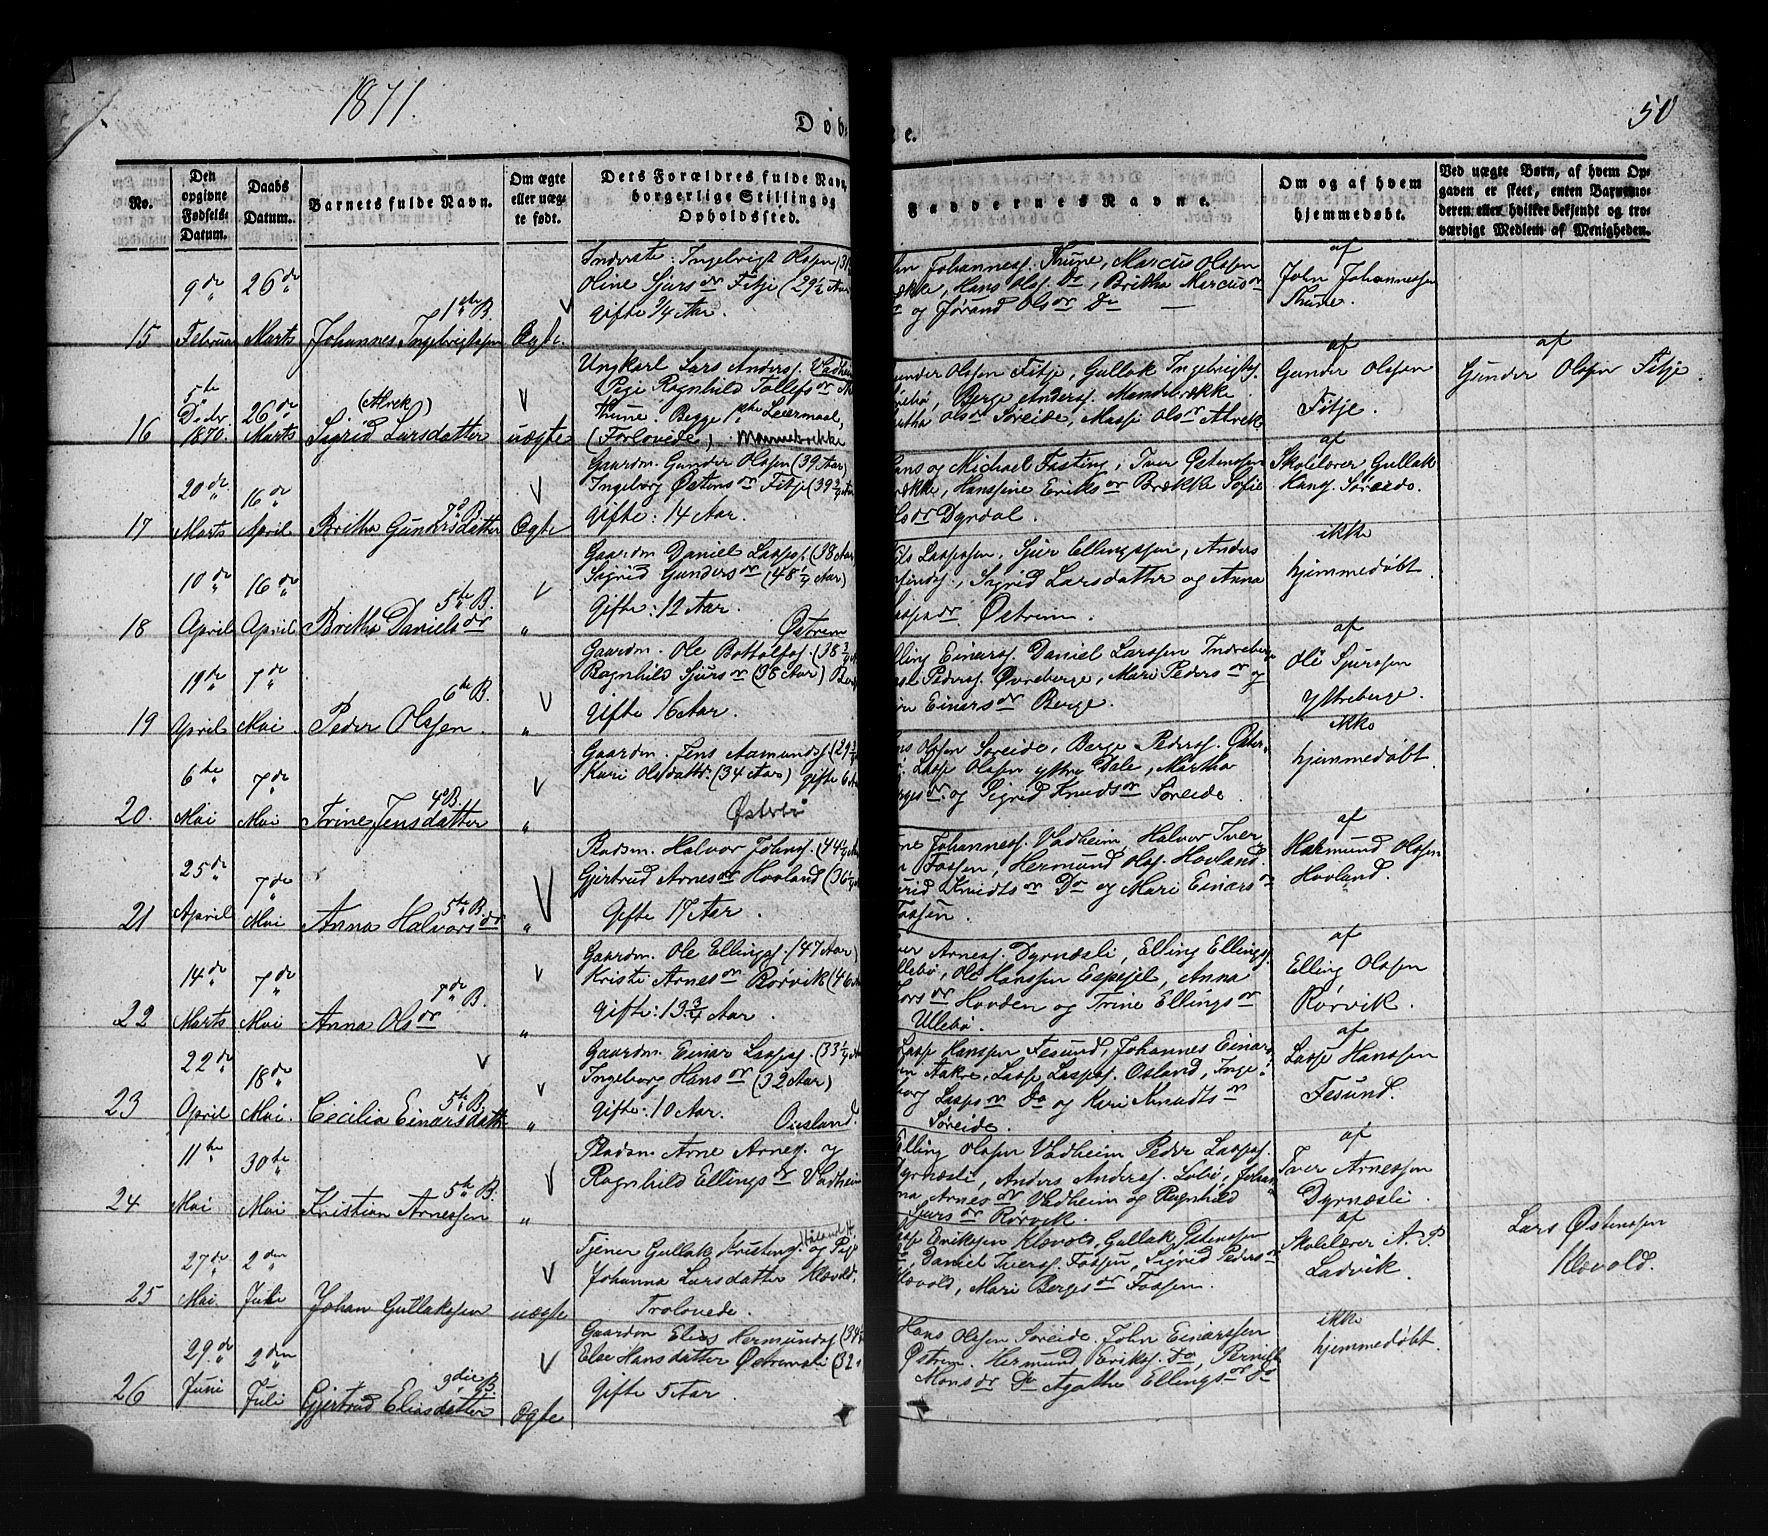 1871.
Døb
e.
50
No.
Den opgivne Fødsels-Datum.
Daabs Datum.
Barnets fulde Navn.
Om ægte eller uægte født.
Dets Forældres fulde Navn, borgerlige Stilling og Opholdssted.
Faddernes Navne.
Om og af hvem hjemmedøbt.
Ved uægte Børn, af hvem Opgaven er skeet, enten Barnemoderen eller hvilket bekjendt og troværdigt Medlem af Menigheden.
15
9de Februar
26de Marts
1ste B.
Johannes Ingelvigtsen
Ægte.
Inderste: Ingelvigt Olsen
Oline Sjursdr Fitje (29½ Aar)
Gifte ¾ Aar.
Johannes. Thune, Marcus Olsen
Brække, Hans Ols. Do, Britha Marcusdr
og Jørand Olsdr Do
af
John Johannessen
Thune.
16
5te Decbr 1870.
26de Marts
(Alvek)
Sigrid Larsdatter
uægte
Ungkarl Lars Anders. Vadheim
(Pige Ragnhild Tollefsdr
Thune. Begge 1ste Leiermaal,
(Forlovede)
Gunder Olssen Fitje, Gullak Ingelvigts.
Berge Anders. Mandebrække
Olsdr Søreide, Massi Olsdr Alvek
af
Gunder Olssen
Fitje.
af
Gunder Olssen Fitje.
17
20de Marts
16de April
7de B.
Britha Gundersdatter
Ægte
Gaardm. Gunder Olssen (39 Aar)
Ingeborg Østensdr Fitje (39¾ Aar)
Gifte: 14 Aar.
Hans og Michael Fasting, Iver Østenssen
Brække, Hanssine Eriksdr Brække Sofie
Dyrdal.
af
Skolelærer Gullak
Hans. Søreide.
18
10de April
16de April
5te B.
Britha Danielsdr
"
Gaardm. Daniel Lasses. (38 Aar)
Sigrid Gundersdr (48¼ Aar)
Gifte: 12 Aar.
Østrem
Lassesen. Sjur Ellingssen, Anders
Sigrid Larsdatter og Anna
Østrem.
ikke
hjemmedøbt.
19
19de April
7de Mai
6te B.
Peder Olssen.
"
Gaardm. Ole Bottolfs.
Ragnhild Sjursdr (38 Aar)
Gifte 16 Aar.
Elling Einars. Daniel Larssen Indreberge
Peders. Øvreberge, Mari Pedersdr og
Einarsdr Berge.
af
Ole Sjurssen
Ytreberge.
20.
6te Mai
7de Mai
4de B.
Trine Jensdatter
"
Gaardm. Jens Aamunds.
Kari Olsdattr. (34 Aar) gifte 6 Aar
Østerbø
Olssen Søreide, Berge Peders. Øster-
Lasse Olssen ytre Dale, Martha
og Sigrid Knudsdr Søreide.
ikke
hjemmedøbt.
21
25de April
7de Mai
5te B.
Anna Halvorsdr
"
Pladsm. Halvor Johns.
Gjertrud Arnesdr Hovland
Gifte 17 Aar.
Johannes. Vadheim, Halvor Iver
Fossen, Hermund Ols. Hovland
Knudtsdr Do og Mari Einarsdr
Fossen.
af
Hermund Olssen
Hovland.
22
14de Marts
7de Mai
7de B.
Anna Olsdr
"
Gaardm. Ole Ellings. (47 Aar)
Kristi Arnesdr Rørvik
Gifte: 19¾ Aar.
Iver Arnes. Dyrnæsli, Elling Ellings.
Ullebø, Ole Hanssen Espejel, Anna
Larsdr Hovden og Trine Ellingsdr
Ullebø.
af
Elling Olssen
Rørvik.
23
22de April
18de Mai.
5te B.
Cecilia Einarsdatter
"
Gaardm. Einar Lasses.
Ingeborg Hansdr (32 Aar)
Gifte: 10 Aar.
Ousland.
Lasse Hanssen Fesund, Johannes Einars-
sen Aakre, Lasse Lasses. Osland, Inge-
borg Lassesdr Do og Kari Knudtsdr
Søreide.
af
Lasse Hanssen
Fesund.
24
11te Mai
30te Mai
5te B.
Kristian Arnessen
"
Pladsm Arne Arnes. og
Ragnhild Ellingsdr Vadheim
Elling Olssen Vadheim Peder Lasses.
Dyrnæsli, Anders Anders. Johan-
na Arnesdr Vadheim og Ragnhild
Sjursdr Rørvik.
af
Iver Arnessen
Dyrnæsli.
25
27de Mai
2den Juli
Johan Gullakssen
uægte
Tjener Gullak Kristens. og Pige
Johanna Larsdatter Klævold.
Trolovede.
Erikssen Klævold, Gullak Østenssen
Daniel Ivers. Fossen, Sigrid Pedersdr
Klævold, Mari Bergesdr Fossen.
af
Skolelærer A. P.
Ladvik.
Lars Østenssen
Klævold.
26
29de Juni
2den Juli
Gjertrud Eliasdatter
Ægte
Gaardm Elias Hermunds.
Else Hansdatter
Gifte 5 Aar.
Hans Olssen Søreide. John Einarssen
Østrem. Hermund Eriks. Do, Pernille
Monsdr Do Agathe Ellingsdr Do
ikke
hjemmedøbt.